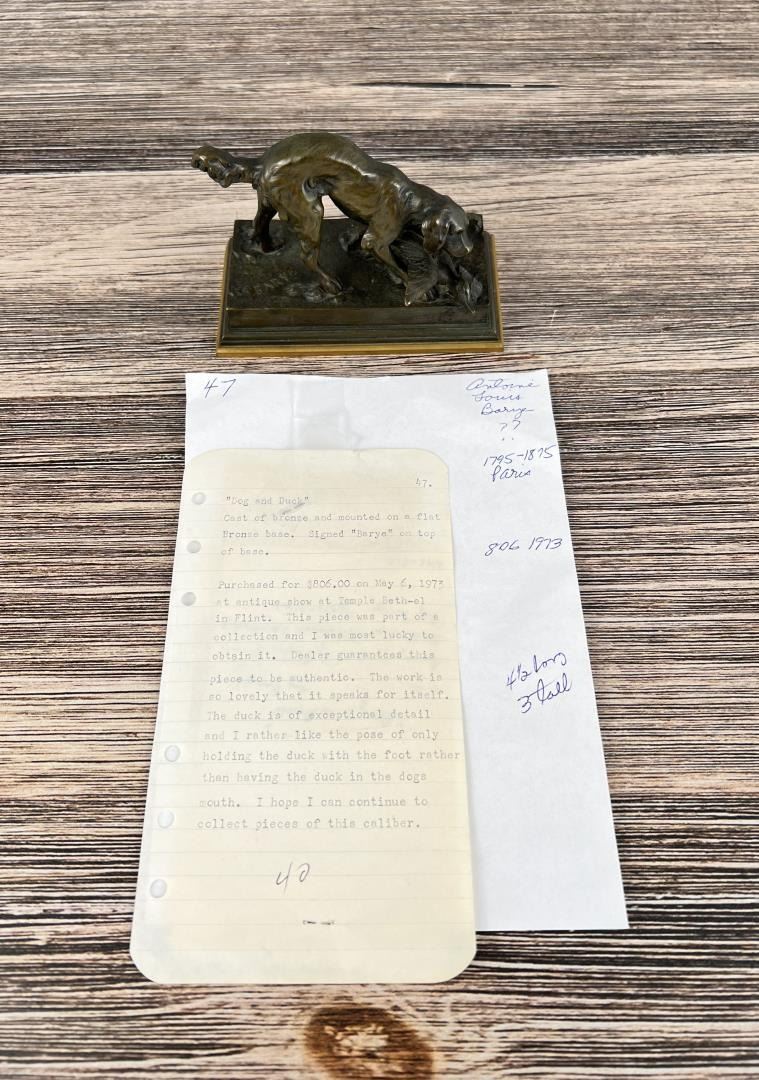 47
Antoine
Louis
Barye
??
1795-1875
Paris
806 1973
4 1/2 long
3 tall
47.
"Dog and Duck"
Cast of bronze and mounted on a flat
Bronze base.  Signed "Barye" on top
of base.
Purchased for $806.00 on May 6, 1973
at antique show at Temple Beth-el
in Flint.  This piece was part of a
collection and I was most lucky to
obtain it.  Dealer guarantees this
piece to be authentic.  The work is
so lovely that it speaks for itself.
The duck is of exceptional detail
and I rather like the pose of only
holding the duck with the foot rather
than having the duck in the dogs
mouth.  I hope I can continue to
collect pieces of this caliber.
40